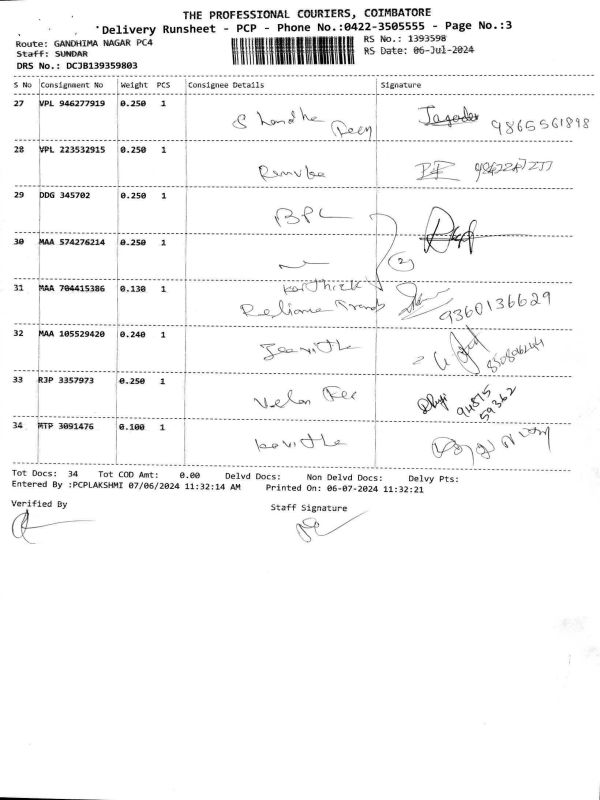 THE PROFESSIONAL COURIERS, COIMBATORE
Delivery Runsheet - PCP - Phone No.:0422-3505555 - Page No.:3
Route: GANDHIMA NAGAR PC4
RS No.: 1393598
Staff: SUNDAR
RS Date: 06-Jul-2024
DRS No.: DCJB139359803
S No Consignment No Weight PCS Consignee Details Signature
27 VPL 946277919 0.250 1 9865561898
28 VPL 223532915 0.250 1 Renuka
29 DDG 345702 0.250 1 BPL
30 MAA 574276214 0.250 1 (2)
31 MAA 704415386 0.130 1 Karthick
Reliance Trends 9360136629
32 MAA 105529420 0.240 1 Jeevitha
33 RJP 3357973 0.250 1 Velan 94575
59362
34 MTP 3091476 0.100 1 kavitha
Tot Docs: 34 Tot COD Amt: 0.00 Delvd Docs: Non Delvd Docs: Delvy Pts:
Entered By :PCPLAKSHMI 07/06/2024 11:32:14 AM Printed On: 06-07-2024 11:32:21
Verified By Staff Signature